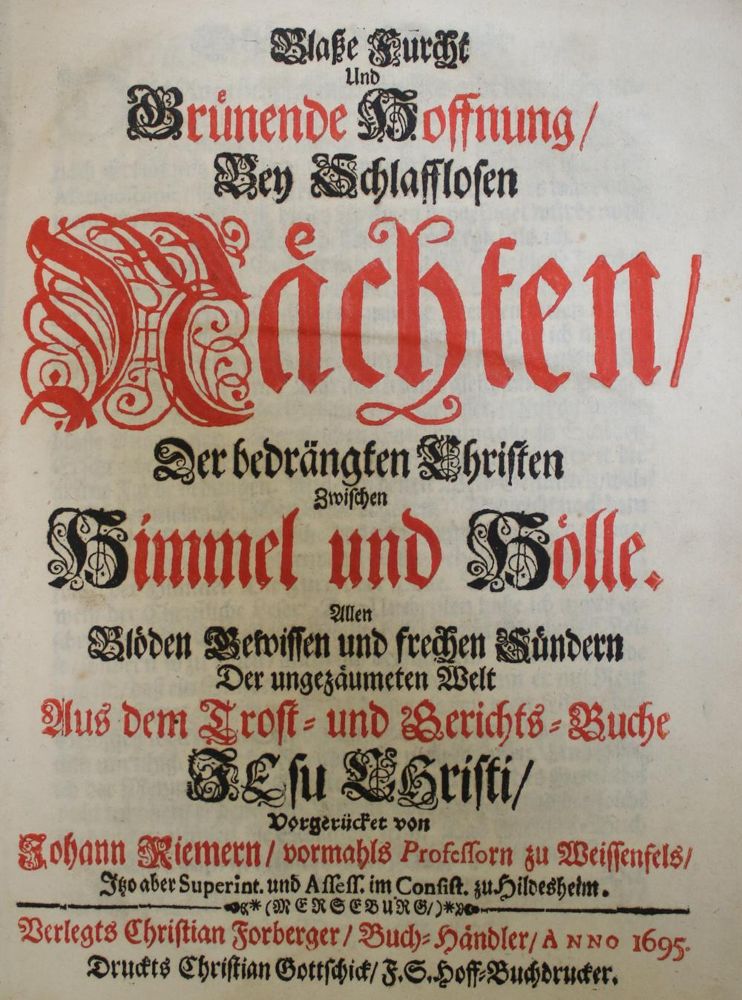 Blaße Furcht
Und
Grünende Hoffnung/
Bey Schlafflosen
Nächten/
Der bedrängten Christen
Zwischen
Himmel und Hölle.
Allen
Blöden Gewissen und frechen Sündern
Der ungezäumeten Welt
Aus dem Trost- und Gerichts-Buche
JEsu CHristi/
Vorgerücket von
Johann Riemern/ vormahls Professorn zu Weissenfels/
Itzo aber Superint. und Assess. im Consist. zu Hildesheim.
*(MERSEBURG/)*
Verlegts Christian Forberger/ Buch-Händler/ ANNO 1695.
Druckts Christian Gottschick/ F. S. Hoff-Buchdrucker.